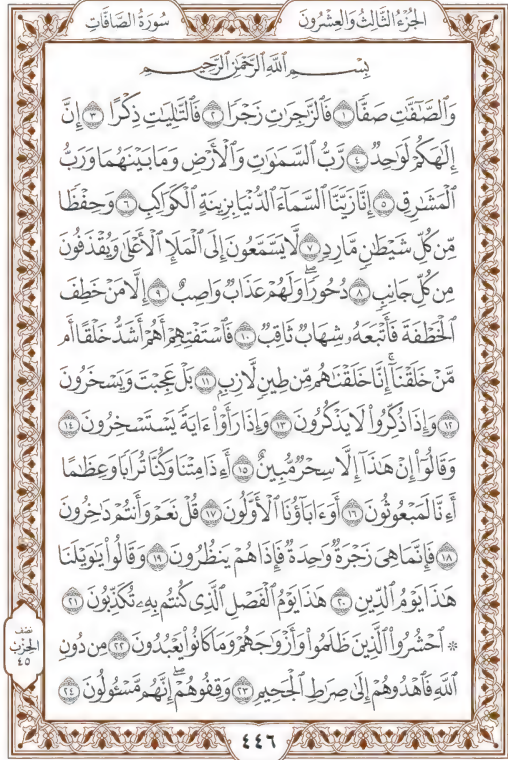 الجُزْءُ الثَّالِثُ وَالعِشْرُونَ سُورَةُ الصَّافَّاتِ
بِسْمِ ٱللَّهِ ٱلرَّحْمَٰنِ ٱلرَّحِيمِ
وَٱلصَّٰٓفَّٰتِ صَفًّا ١ فَٱلزَّٰجِرَٰتِ زَجْرًا ٢ فَٱلتَّٰلِيَٰتِ ذِكْرًا ٣ إِنَّ
إِلَٰهَكُمْ لَوَٰحِدٌ ٤ رَّبُّ ٱلسَّمَٰوَٰتِ وَٱلْأَرْضِ وَمَا بَيْنَهُمَا وَرَبُّ
ٱلْمَشَٰرِقِ ٥ إِنَّا زَيَّنَّا ٱلسَّمَآءَ ٱلدُّنْيَا بِزِينَةٍ ٱلْكَوَاكِبِ ٦ وَحِفْظًا
مِّن كُلِّ شَيْطَٰنٍ مَّارِدٍ ٧ لَّا يَسَّمَّعُونَ إِلَى ٱلْمَلَإِ ٱلْأَعْلَىٰ وَيُقْذَفُونَ
مِن كُلِّ جَانِبٍ ٨ دُحُورًا ۖ وَلَهُمْ عَذَابٌ وَاصِبٌ ٩ إِلَّا مَنْ خَطِفَ
ٱلْخَطْفَةَ فَأَتْبَعَهُۥ شِهَابٌ ثَاقِبٌ ١٠ فَٱسْتَفْتِهِمْ أَهُمْ أَشَدُّ خَلْقًا أَم
مَّنْ خَلَقْنَآ ۚ إِنَّا خَلَقْنَٰهُم مِّن طِينٍ لَّازِبٍۭ ١١ بَلْ عَجِبْتَ وَيَسْخَرُونَ
١٢ وَإِذَا ذُكِّرُوا۟ لَا يَذْكُرُونَ ١٣ وَإِذَا رَأَوْا۟ ءَايَةً يَسْتَسْخِرُونَ ١٤
وَقَالُوٓا۟ إِنْ هَٰذَآ إِلَّا سِحْرٌ مُّبِينٌ ١٥ أَءِذَا مِتْنَا وَكُنَّا تُرَابًا وَعِظَٰمًا
أَءِنَّا لَمَبْعُوثُونَ ١٦ أَوَءَابَآؤُنَا ٱلْأَوَّلُونَ ١٧ قُلْ نَعَمْ وَأَنتُمْ دَٰخِرُونَ
١٨ فَإِنَّمَا هِىَ زَجْرَةٌ وَٰحِدَةٌ فَإِذَا هُمْ يَنظُرُونَ ١٩ وَقَالُوا۟ يَٰوَيْلَنَا
هَٰذَا يَوْمُ ٱلدِّينِ ٢٠ هَٰذَا يَوْمُ ٱلْفَصْلِ ٱلَّذِى كُنتُم بِهِۦ تُكَذِّبُونَ ٢١
۞ ٱحْشُرُوا۟ ٱلَّذِينَ ظَلَمُوا۟ وَأَزْوَٰجَهُمْ وَمَا كَانُوا۟ يَعْبُدُونَ ٢٢ مِن دُونِ
ٱللَّهِ فَٱهْدُوهُمْ إِلَىٰ صِرَٰطِ ٱلْجَحِيمِ ٢٣ وَقِفُوهُمْ ۖ إِنَّهُم مَّسْـُٔولُونَ ٢٤
نصف
الحزب
٤٥
٤٤٦